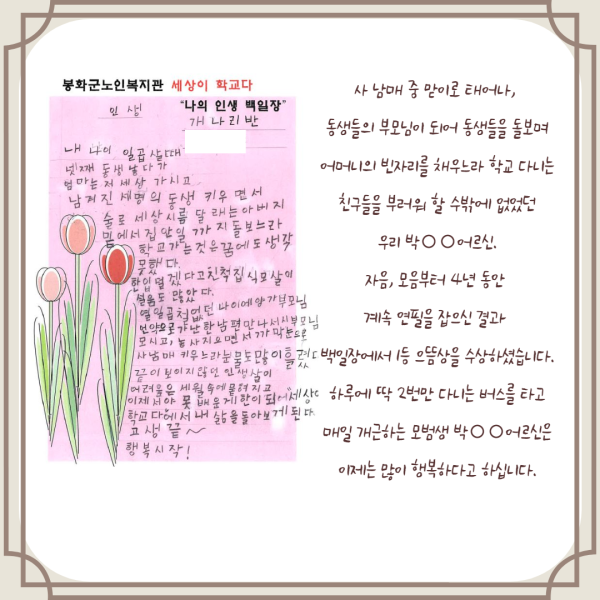 봉화군노인복지관 세상이 학교다
"나의 인생 백일장"
인생
개나리반
내 나이 일곱살때
넷째 동생 낳다가
엄마는 저세상 가시고
남겨진 세명의 동생 키우면서
술로 세상시름 달래는 아버지
밑에서 집안일 가지 돌보느라
학교가는것은 꿈에도 생각
못했다.
한입 덜겠다고 친척집 식모살이
설움도 많았다.
열일곱 철없던 나이에 양가부모님
언약으로 가난한 남편 만나서 시부모님
모시고, 농사지으면서 가막눈으로
사남매 키우느라 눈물도 많이 흘렸다
끝이 보이지 않던 인생살이
어려움은 세월속에 묻혀지고
이제서야 못배운게 한이 되어 "세상이
학교다"에서 내 삶을 돌아보게 된다.
고생 끝~
행복시작!
사 남매 중 맏이로 태어나,
동생들의 부모님이 되어 동생들을 돌보며
어머니의 빈자리를 채우느라 학교 다니는
친구들을 부러워 할 수밖에 없었던
우리 박○○어르신.
자음, 모음부터 4년 동안
계속 연필을 잡으신 결과
백일장에서 1등 으뜸상을 수상하셨습니다.
하루에 딱 2번만 다니는 버스를 타고
매일 개근하는 모범생 박○○어르신은
이제는 많이 행복하다고 하십니다.